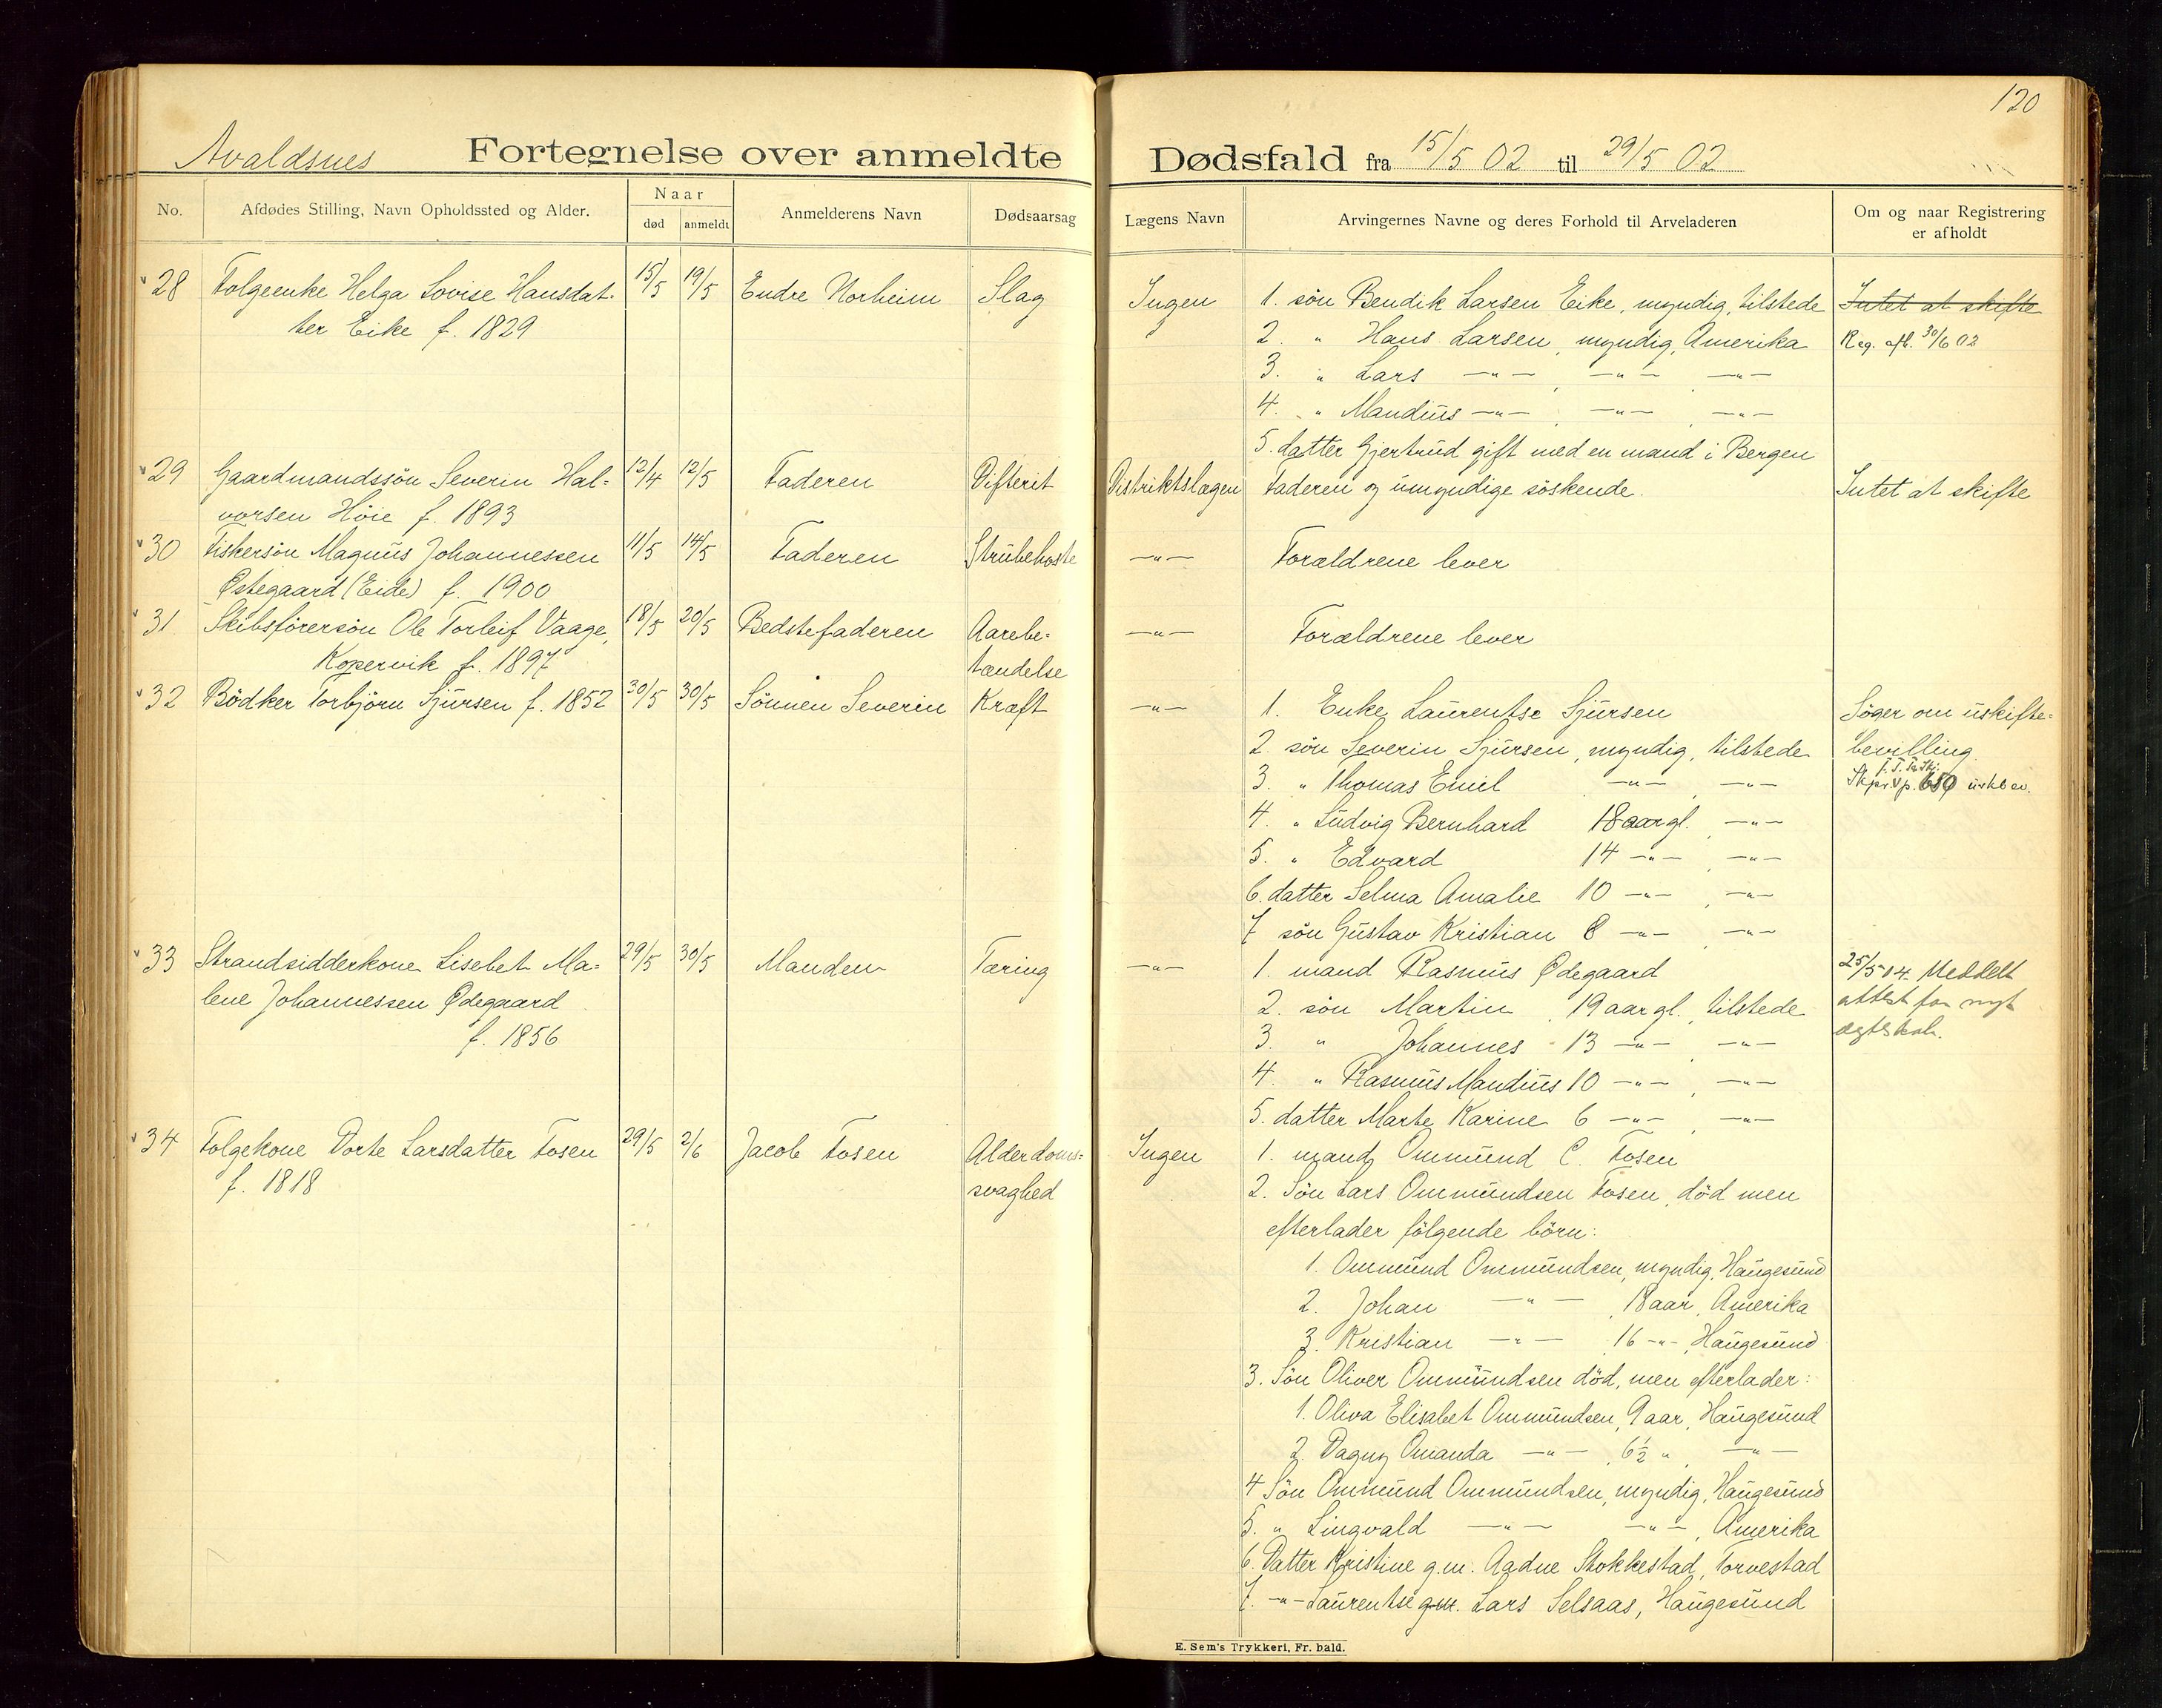 120
Avaldsnes Fortegnelse over anmeldte Dødsfald fra 15/5 02 til 29/5 02
No. Afdødes Stilling, Navn Opholdssted og Alder. Naar død anmeldt Anmelderens Navn Dødsaarsag Lægens Navn Arvingernes Navne og deres Forhold til Arveladeren Om og naar Registrering er afholdt
28 Folgeenke Helga Lovise Hansdat- 15/5 19/5 Endre Norheim Slag Ingen 1. søn Bendik Larsen Eike, myndig, tilstede Intet at skifte
ter Eike f. 1829 2. " Hans Larsen, myndig, Amerika Reg. afh. 30/6 02
3. " Lars —"— , —"— —"—
4. " Mandius —"— , —"— , —"—
5. datter Gjertrud gift med en mand i Bergen
29 Gaardmandssøn Severin Hal- 12/4 12/5 Faderen Difterit Distriktslægen Faderen og umyndige söskende. Intet at skifte
vorsen Höie f. 1893
30 Fiskersön Magnus Johannessen 11/5 14/5 Faderen Strubehoste —"— Forældrene lever
Østegaard (Eide) f. 1900
31 Skibsförersön Ole Torleif Vaage, 18/5 20/5 Bedstefaderen Aarebe- —"— Forældrene lever
Kopervik f. 1897 tændelse
32 Bödker Torbjörn Sjursen f. 1852 30/5 30/5 Sönnen Severin Kræft —"— 1. Enke Laurentse Sjursen Söger om uskifte-
2. sön Severin Sjursen, myndig, tilstede bevilling
3. " Thomas Emil —"— , —"— Skpr. V p. 659 uskbev.
4. " Ludvig Bernhard 18 aar gl. , —"—
5. " Edvard 14 —"— , —"—
6. datter Selma Amalie 10 —"— , —"—
7 sön Gustav Kristian 8 —"— , —"—
33 Strandsidderkone Lisebet Ma- 29/5 30/5 Manden Tæring —"— 1. mand Rasmus Ødegaard 25/5 04. Meddelt
lene Johannessen Ødegaard 2. sön Martin , 19 aar gl., tilstede attest for nyt
f. 1856 3. " Johannes - 13 —"— , —"— ægteskab.
4. " Rasmus Mandius 10 —"— , —"—
5. datter Marte Karine 6 —"— , —"—
34 Folgekone Dorte Larsdatter Fosen 29/5 2/6 Jacob Fosen Alderdoms- Ingen 1. mand Ommund C. Fosen
f. 1818 svaghed 2. Sön Lars Ommundsen Fosen, död men
efterlader fölgende börn:
1. Ommund Ommundsen, myndig, Haugesund
2. Johan —"— , 18 aar, Amerika
3. Kristian —"— , 16 -"- , Haugesund
3. Sön Oliver Ommundsen död, men efterlader:
1. Oliva Elisabet Ommundsen, 9 aar, Haugesund
2. Dagny Omanda —"— , 6½ " , —"—
4 Sön Ommund Ommundsen, myndig, Haugesund
5. " Lingvald —"— —"— , Amerika
6. Datter Kristine g.m. Aadne Stokkestad, Torvestad
7. -"- Laurentse g.m. Lars Selsaas, Haugesund
E. Sem's Trykkeri, Fr. hald.